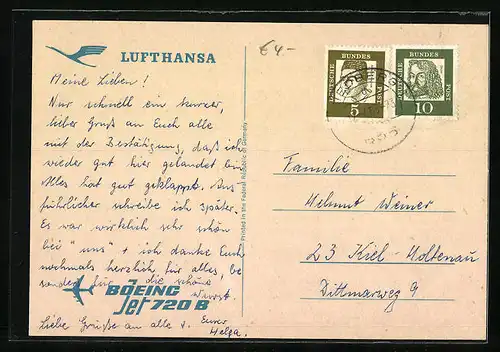 LUFTHANSA
€4-
Meine Lieben!
Nur schnell ein kurzer,
lieber Gruß an Euch alle
mit der Bestätigung, daß ich
wieder gut hier gelandet bin
Alles hat gut geklappt. Aus
führlicher schreibe ich später.
Es war wirklich sehr schön
bei "uns" + ich danke Euch
nochmals herzlich für alles, be
sonders für die schöne
Wurst.
Liebe Grüße an alle v. Eurer
Helga.
BOEING
Jet 720 B
Printed in the Federal Republic of Germany
DEUTSCHE BUNDES POST
5
DEUTSCHE BUNDES POST
10
Familie
Helmut Weiner
23 Kiel-Holtenau
Dittmarweg 9